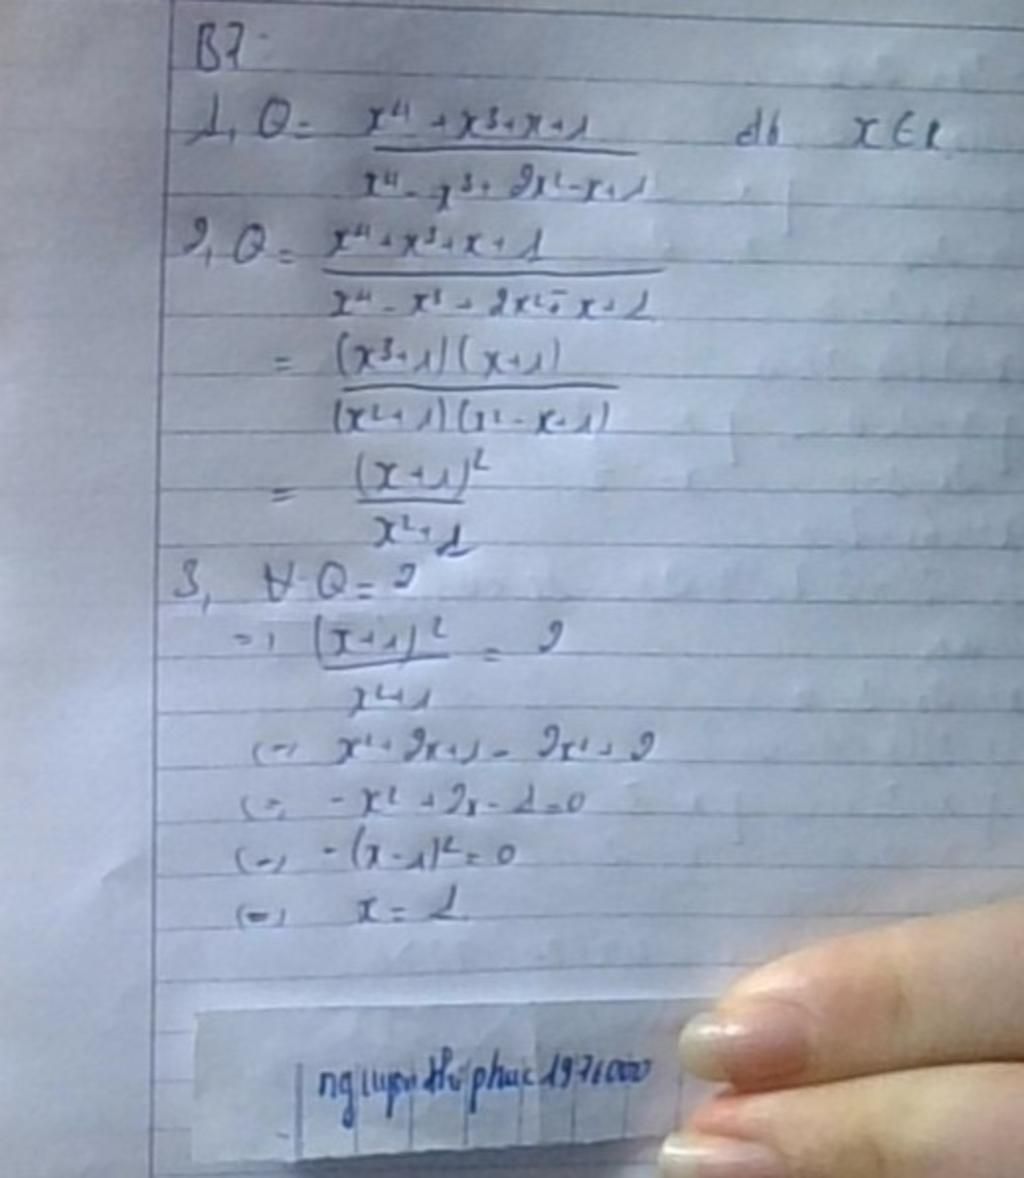 B7:
1, Q = x⁴ + x³ + x + 1 / x⁴ - x³ + 2x² - x + 1 đk x ∈ R
2, Q = x⁴ + x³ + x + 1 / x⁴ - x³ + 2x² - x + 1
= (x³+1)(x+1) / (x²+1)(x²-x+1)
= (x+1)² / x²+1
3, Q = 2
=> (x+1)² / x²+1 = 2
<=> x² + 2x + 1 = 2x² + 2
<=> -x² + 2x - 1 = 0
<=> -(x-1)² = 0
<=> x = 1
nguyen thi phuc 1971000